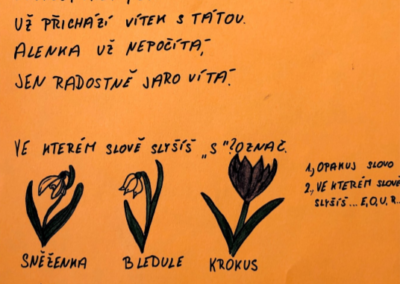 UŽ PŘICHÁZÍ VÍTEK S TÁTOU.
ALENKA UŽ NEPOČÍTÁ,
JEN RADOSTNĚ JARO VÍTÁ.
VE KTERÉM SLOVĚ SLYŠÍŠ „S“? OZNAČ.
1, OPAKUJ SLOVO
2, VE KTERÉM SLOVĚ
SLYŠÍŠ ... E, O, U, R..
SNĚŽENKA BLEDULE KROKUS